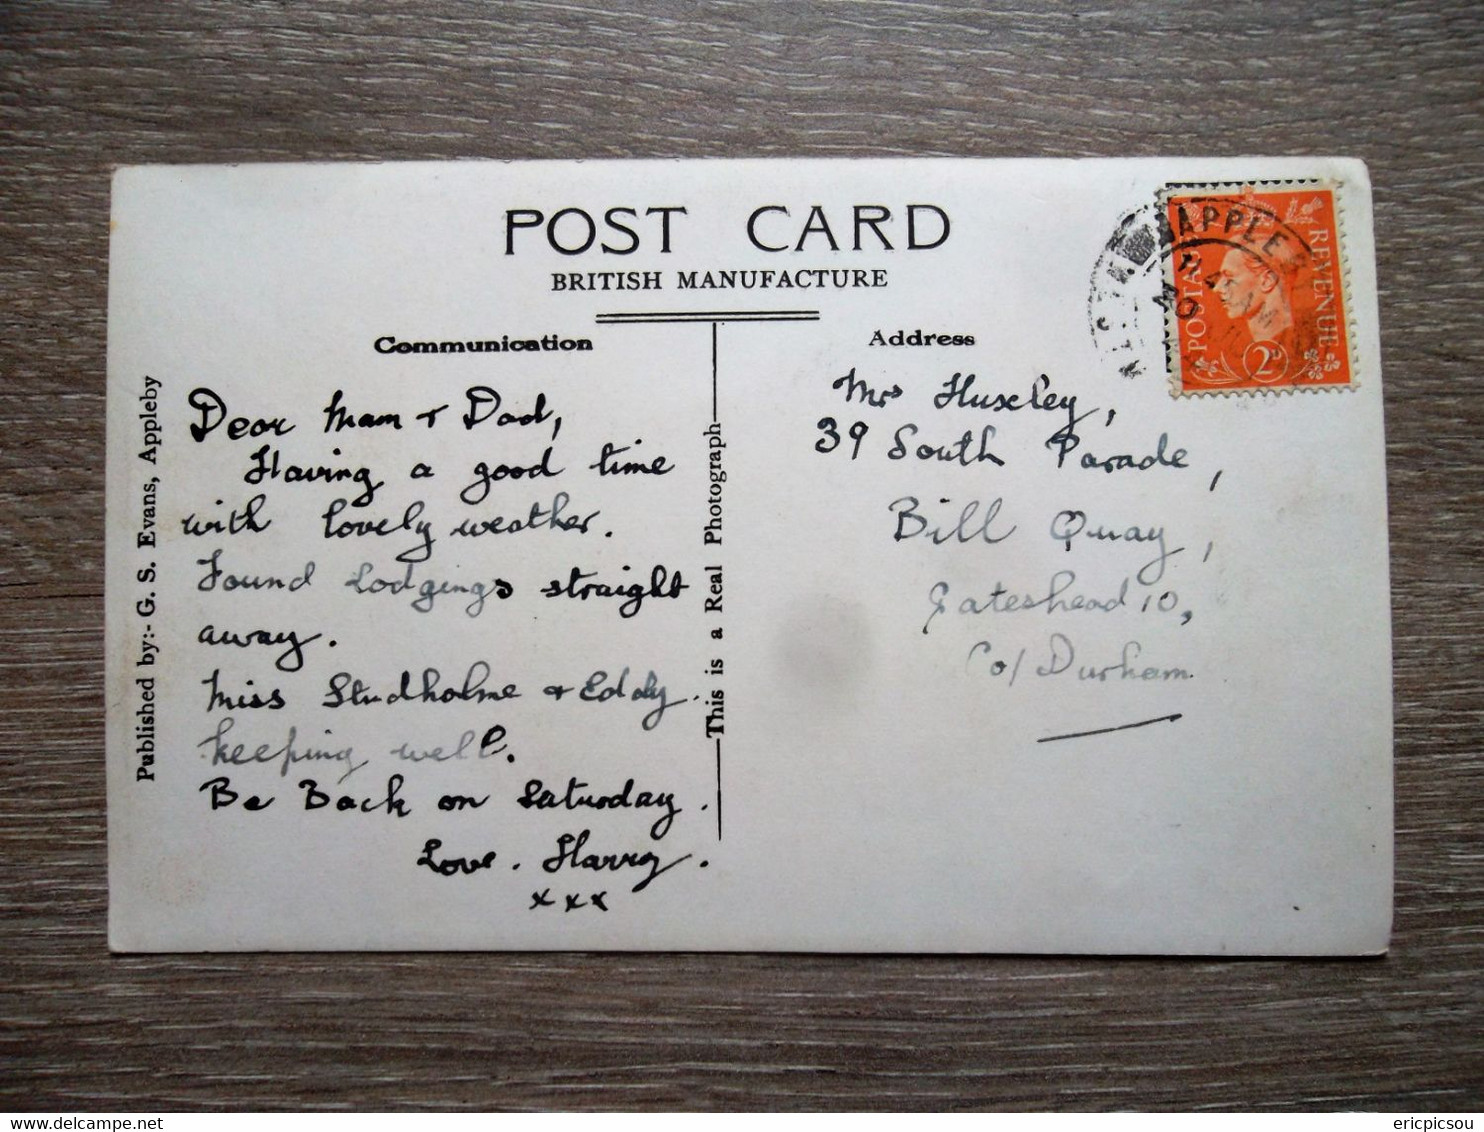 POST CARD
BRITISH MANUFACTURE
Communication
Dear Mam + Dad,
Having a good time
with lovely weather.
Found Lodgings straight
away.
Miss Studholme + Eddy
keeping well.
Be Back on Saturday.
Love. Harry.
xxx
Published by:- G. S. Evans, Appleby
This is a Real Photograph
Address
Mrs Huxley,
39 South Parade,
Bill Quay,
Gateshead 10,
Co/ Durham
APPLEB
POSTAGE
REVENUE
2D
delcampe.net
ericpicsou